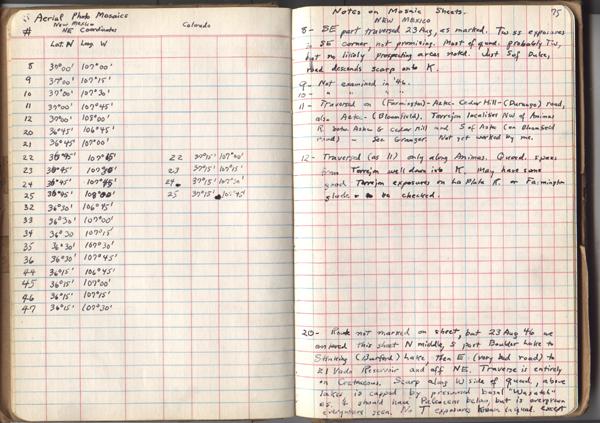 Aerial Photo Mosaics
New Mexico Colorado
# NE Coordinates
Lat. N Long. W
8 37°00' 107°00'
9 37°00' 107°15'
10 37°00' 107°30'
11 37°00' 107°45'
12 37°00' 108°00'
20 36°45' 106°45'
21 36°45' 107°00'
22 36°45' 107°15' 22 37°15' 107°00'
23 36°45' 107°30' 23 37°15' 107°15'
24 36°45' 107°45' 24 37°15' 107°30'
25 36°45' 108°00' 25 37°15' 107°45'
32 36°30' 106°45'
33 36°30' 107°00'
34 36°30 107°15'
35 36°30' 107°30'
36 36°30' 107°45'
44 36°15' 106°45'
45 36°15' 107°00'
46 36°15' 107°15'
47 36°15' 107°30'
Notes on Mosaic Sheets. 75
NEW MEXICO
8 - SE part traversed 23 Aug, as marked. Tw ss exposures
in SE corner, not promising. Most of quad. probably Tw,
but no likely prospecting areas noted. Just S of Dulce,
road descends scarp onto K.
9 - Not examined in '46.
10 - " " " "
11 - Traversed on (Farmington) - Aztec - Cedar Hill - (Durango) road,
also Aztec - (Bloomfield). Torrejon localities NW of Animas
R. betw. Aztec & Cedar Hill and S of Aztec (on Bloomfield
road) - See Granger. Not yet worked by me.
12 - Traversed (as 11) only along Animas. Quad. spans
from Torrejon well down into K. May have some
good Torrejon exposures on La Plata R. or Farmington
glade - to be checked.
20 - Route not marked on sheet, but 23 Aug 46 we
entered this sheet N middle, S past Boulder Lake to
Stinking (Burford) Lake, then E (very bad road) to
El Vado Reservoir and off NE. Traverse is entirely
on Cretaceous. Scarp along W side of quad, above
lakes is capped by presumed basal "Wasatch"
ss. & should have Paleocene below, but is overgrown
everywhere seen. No T exposures known in quad. except